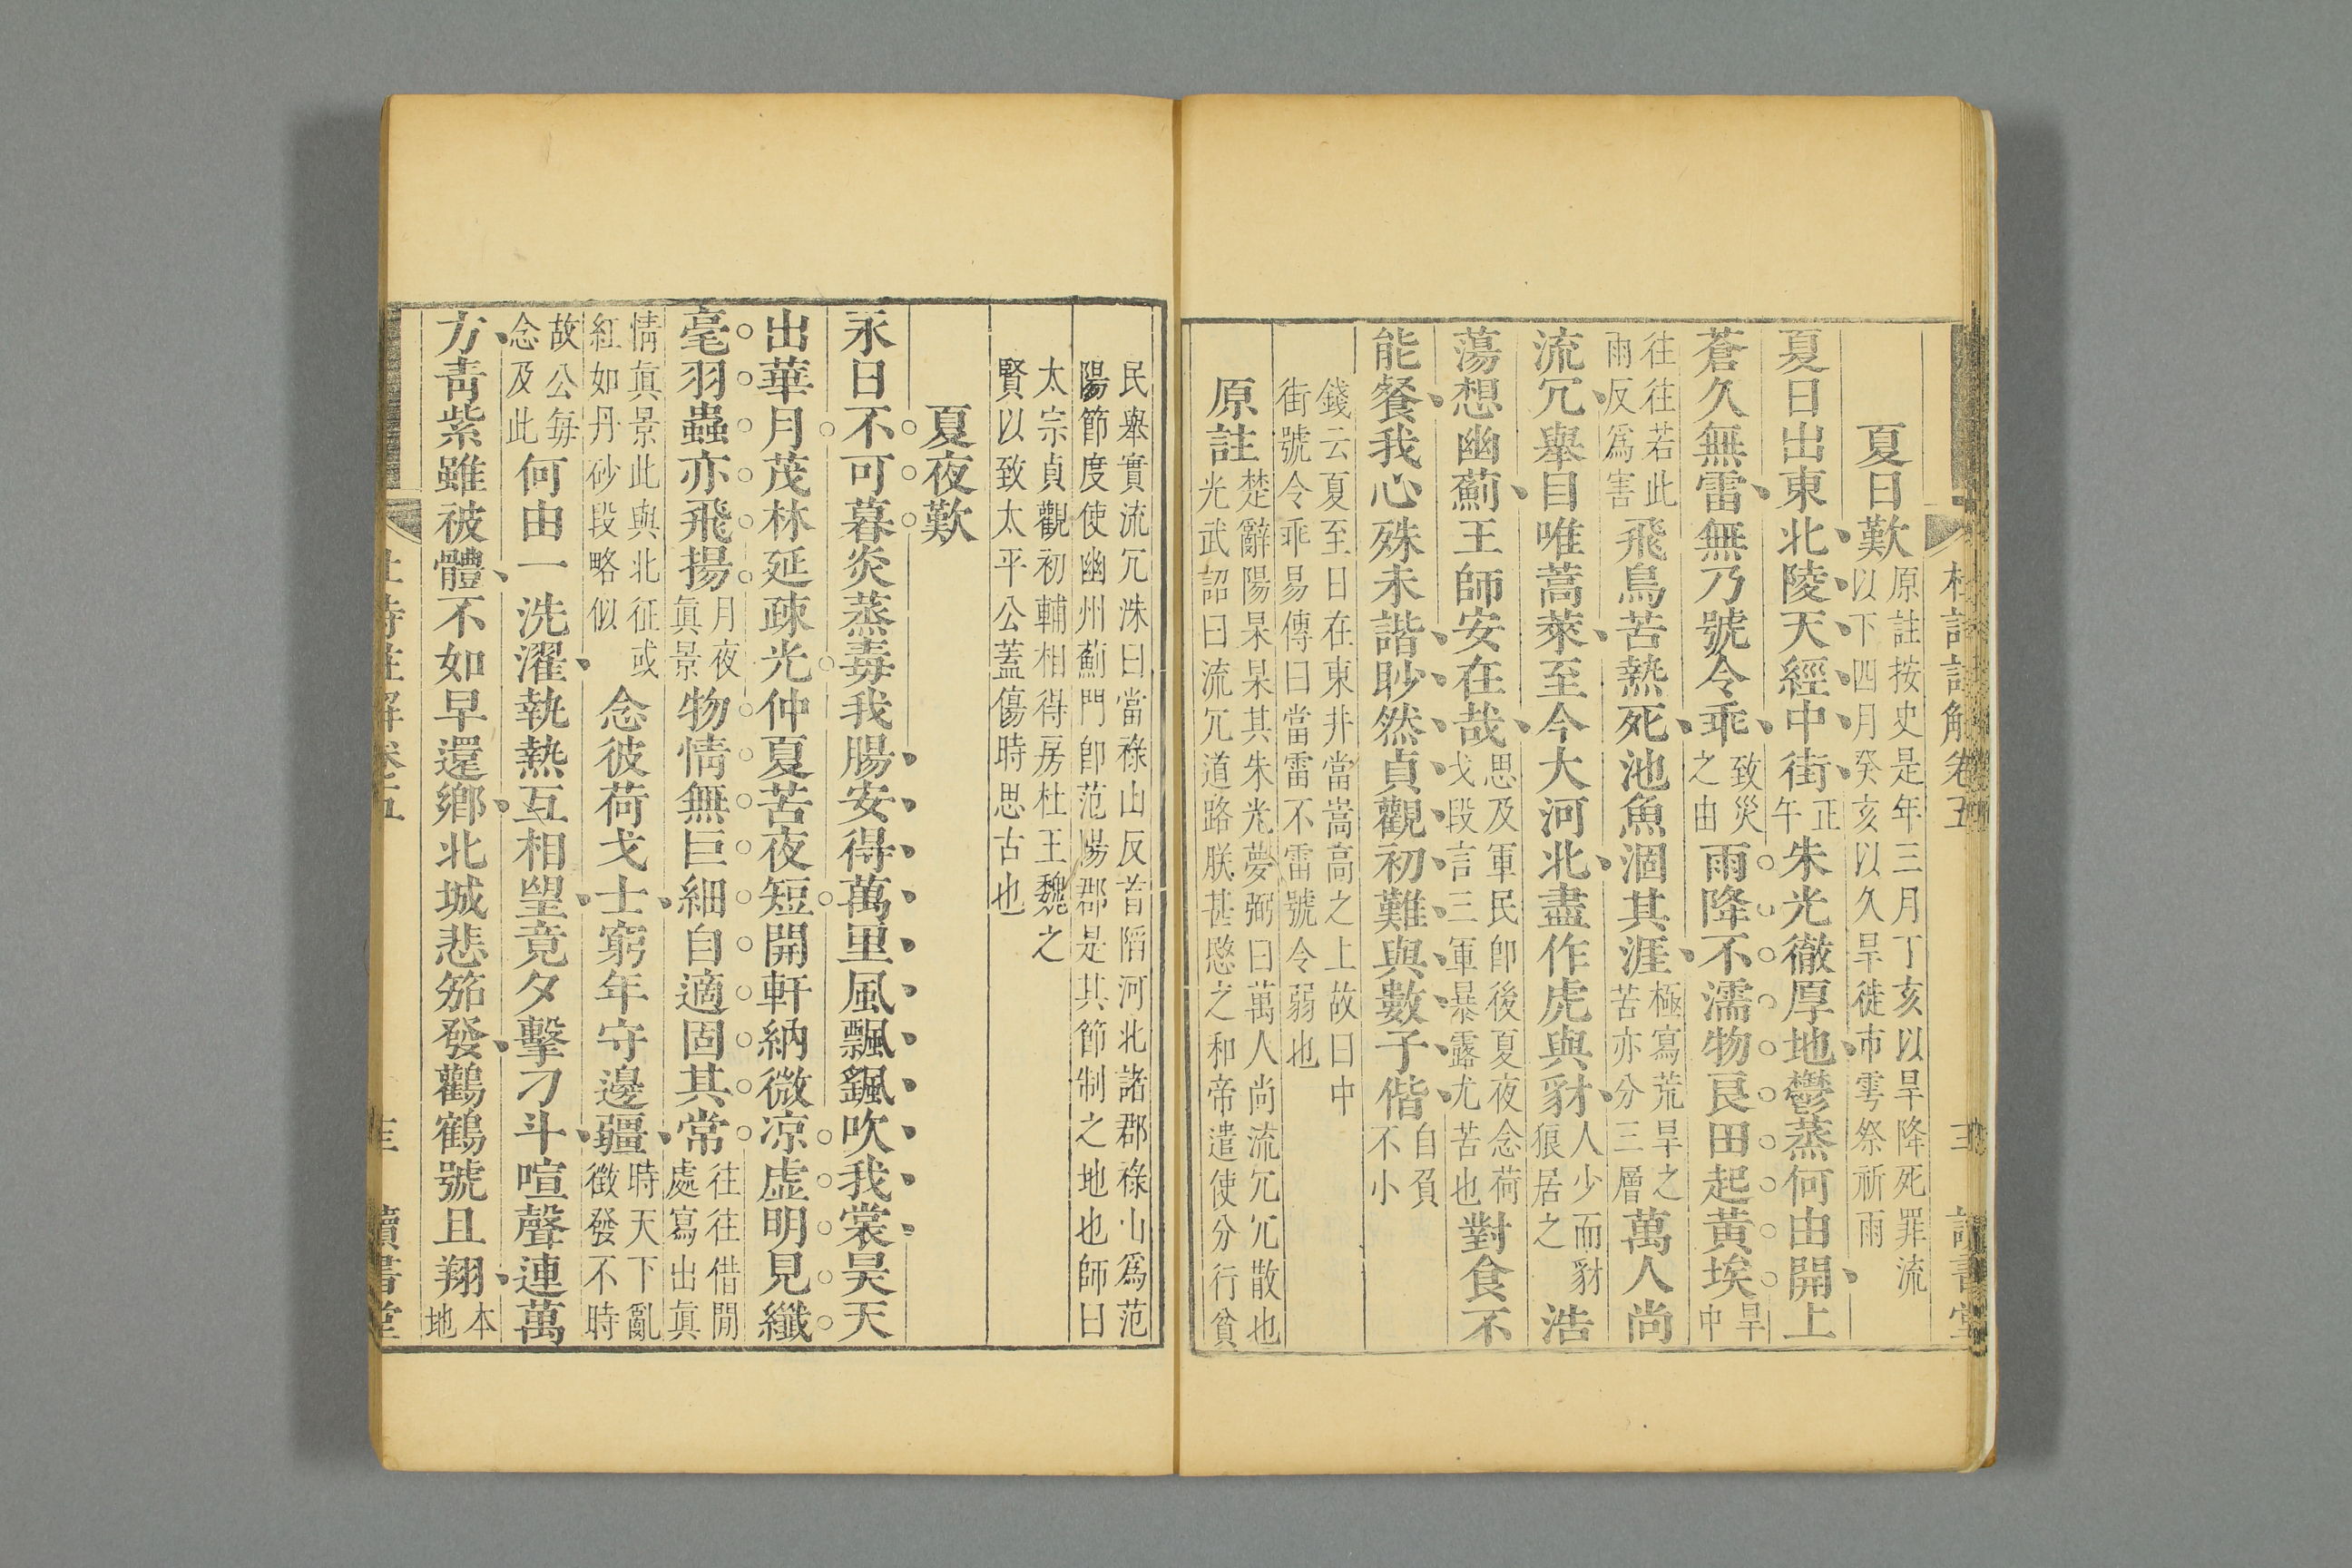 夏日歎 原註按史是年三月丁亥以旱降死罪流以下四月癸亥以久旱徙市雩祭祈雨
夏日出東北陵天經中街正午朱光徹厚地鬱蒸何由開上
蒼久無雷無乃號令乖致災之由雨降不濡物良田起黃埃旱中
往往若此雨反爲害飛鳥苦熱死池魚涸其涯極寫荒旱之苦亦分三層萬人尚
流冗舉目唯蒿萊至今大河北盡作虎與豺人少而豺狼居之浩
蕩想幽薊王師安在哉思及軍民卽後夏夜念荷戈段言三軍暴露尤苦也對食不
能餐我心殊未諧眇然貞觀初難與數子偕自負不小
錢云夏至日在東井當嵩高之上故曰中
街號令乖易傳曰當雷不雷號令弱也
原註 楚辭陽杲杲其朱光夢弼曰萬人尚流冗冗散也光武詔曰流冗道路朕甚愍之和帝遣使分行貧
民舉實流冗洙曰當祿山反首陷河北諸郡祿山爲范
陽節度使幽州薊門卽范陽郡是其節制之地也師曰
太宗貞觀初輔相得房杜王魏之
賢以致太平公蓋傷時思古也
夏夜歎
永日不可暮炎蒸毒我腸安得萬里風飄颻吹我裳昊天
出華月茂林延疎光仲夏苦夜短開軒納微凉虛明見纖
毫羽蟲亦飛揚月夜眞景物情無巨細自適固其常往往借閒處寫出眞
情眞景此與北征或紅如丹砂段略似念彼荷戈士窮年守邊疆時天下亂徵發不時
故公每念及此何由一洗濯執熱互相望竟夕擊刁斗喧聲連萬
方靑紫雖被體不如早還鄉北城悲笳發鸛鶴號且翔本地